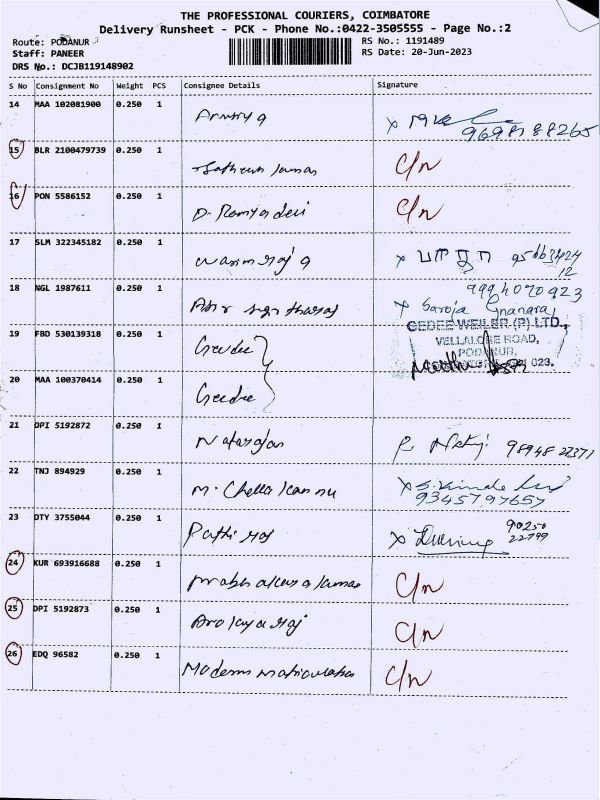 THE PROFESSIONAL COURIERS, COIMBATORE
Delivery Runsheet - PCK - Phone No.:0422-3505555 - Page No.:2
Route: PODANUR RS No.: 1191489
Staff: PANEER RS Date: 20-Jun-2023
DRS No.: DCJB119148902
S No Consignment No Weight PCS Consignee Details Signature
14 MAA 102081900 0.250 1
15 BLR 2100479739 0.250 1 C/N
16 PON 5586152 0.250 1 D. Ramya devi C/N
17 SLM 322345182 0.250 1
18 NGL 1987611 0.250 1 9994070923
x Saroja Gnanaraj
19 FBD 530139318 0.250 1 Geedee GEDEE WEILER (P) LTD.,
VELLALORE ROAD,
PODANUR,
023.
20 MAA 100370414 0.250 1 Geedee
21 DPI 5192872 0.250 1 Natarajan 98948 22371
22 TNJ 894929 0.250 1 M. Chella Kannu 9345797657
23 DTY 3755044 0.250 1 Pathi raj x 90250
22799
24 KUR 693916688 0.250 1 C/N
25 DPI 5192873 0.250 1 Arokya raj C/N
26 EDQ 96582 0.250 1 Modern matriculation C/N